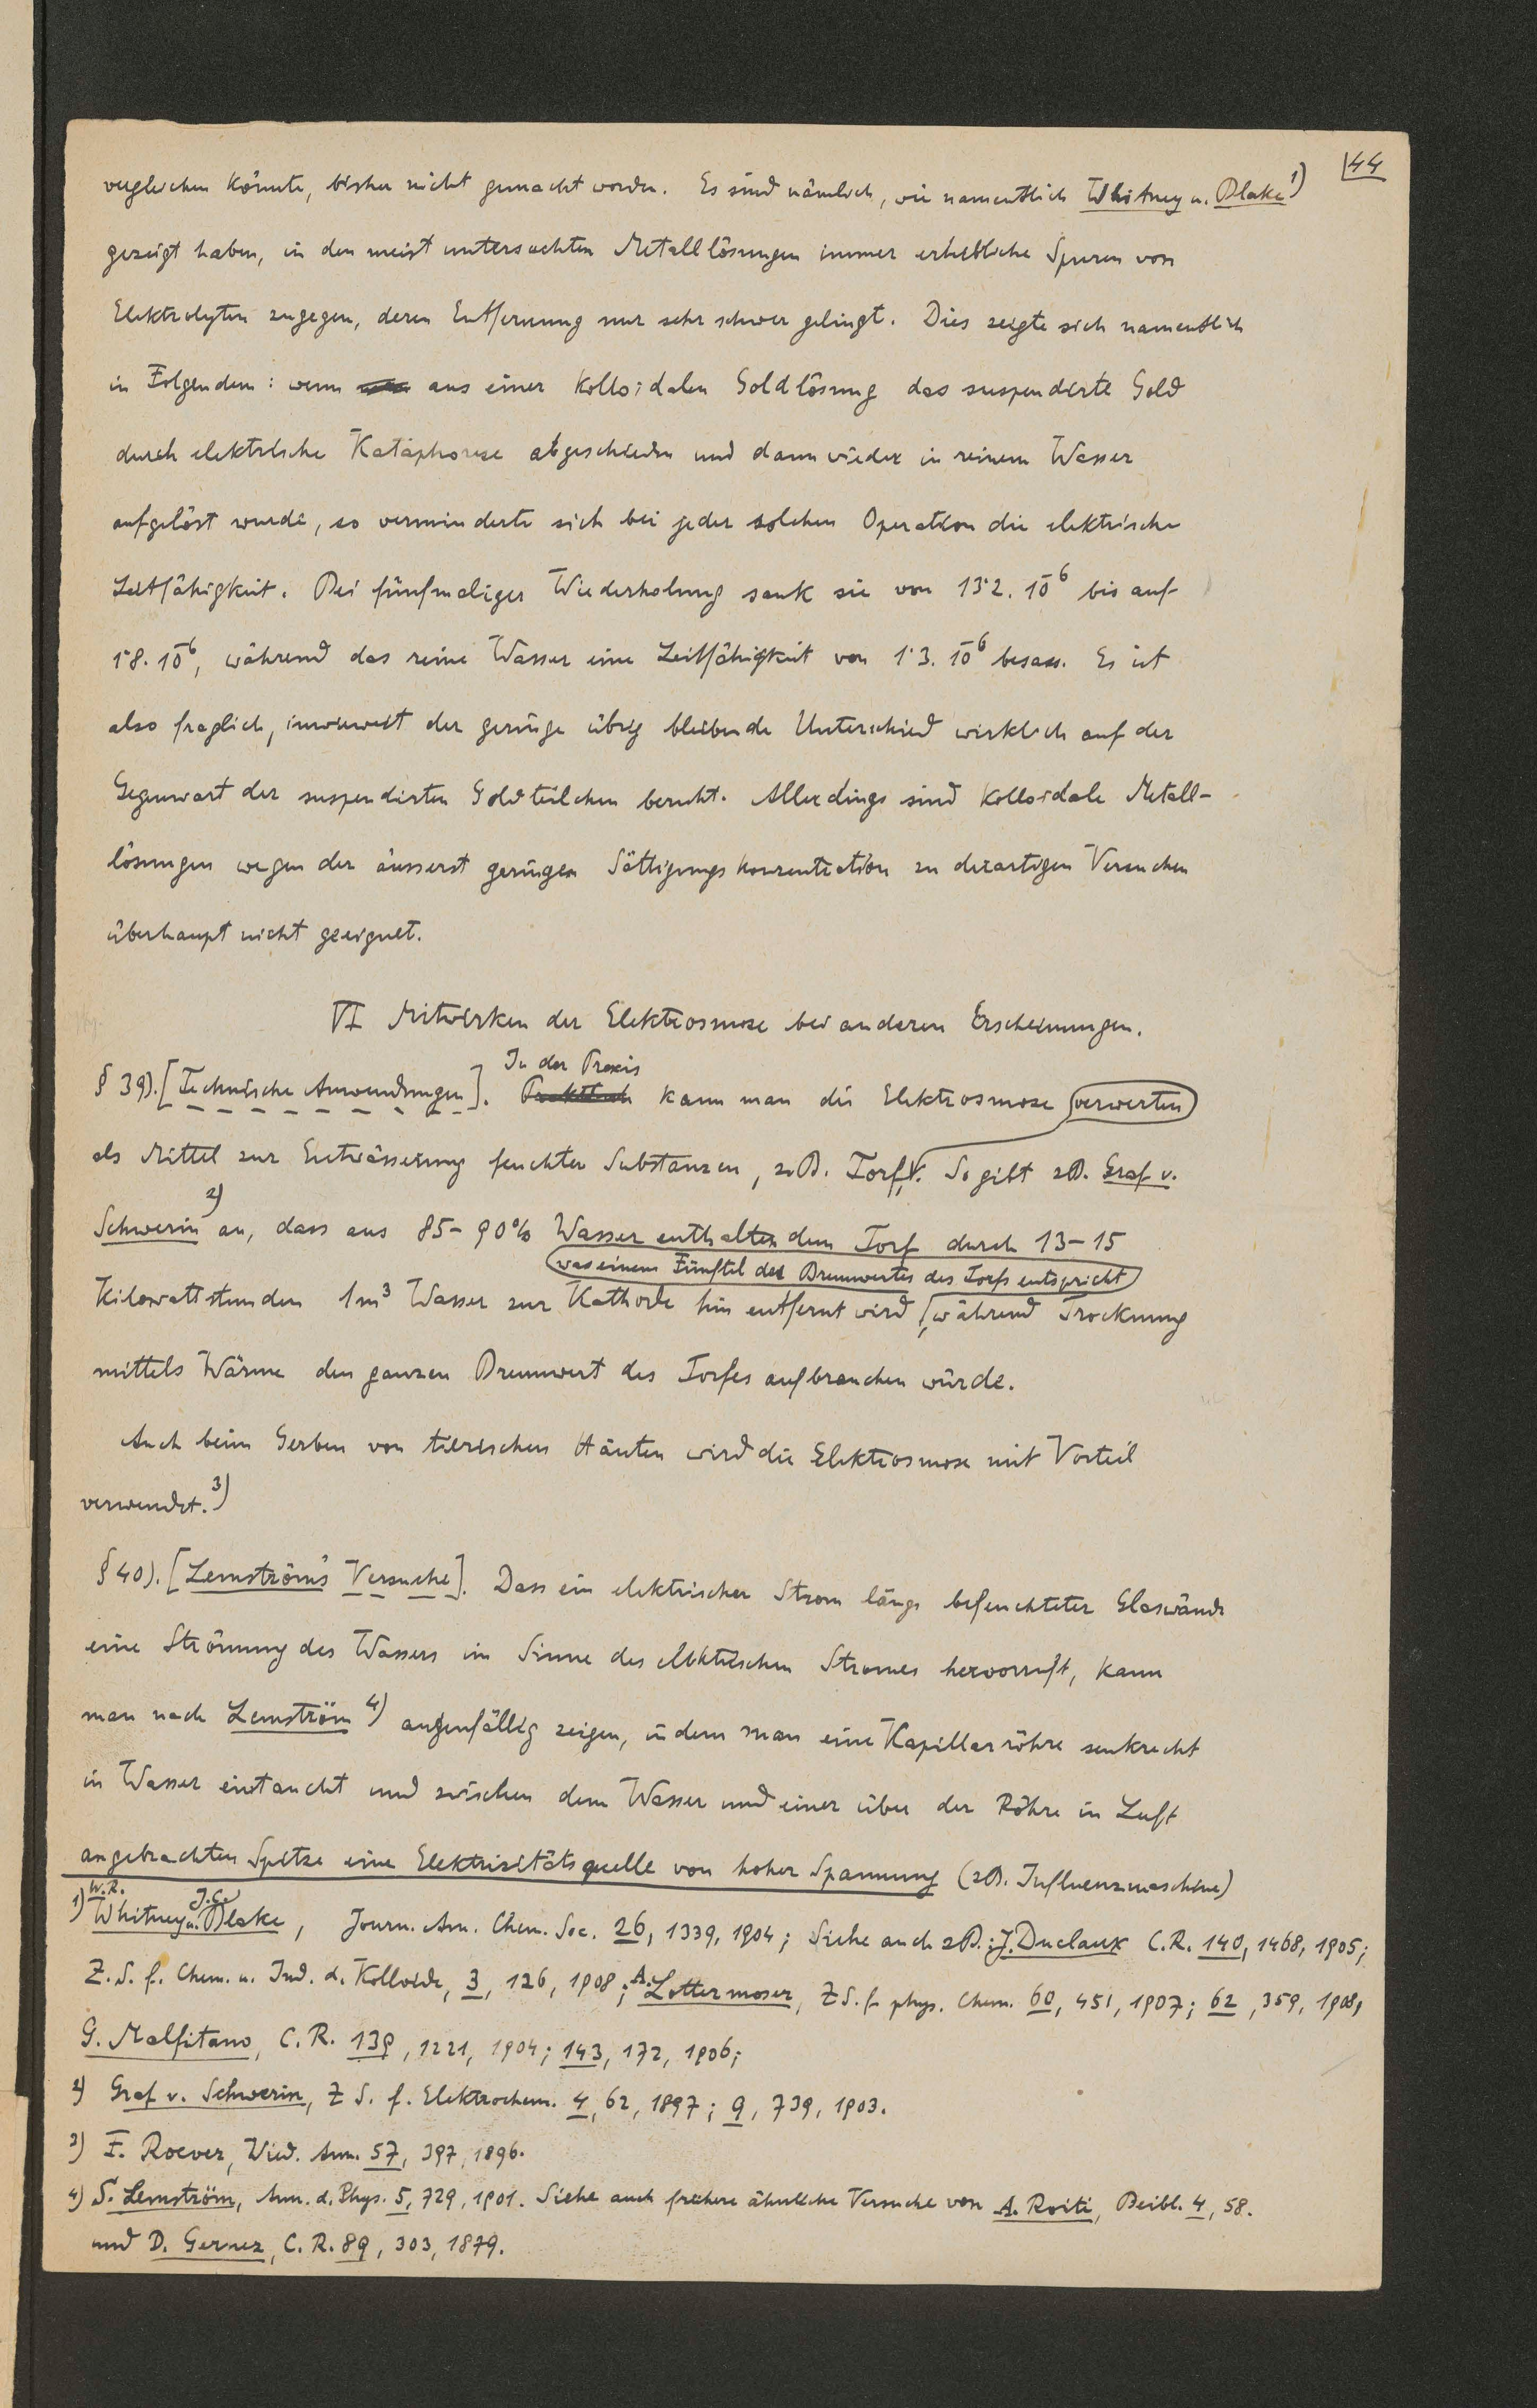 44
vergleichen könnte, bisher nicht gemacht worden. Es sind nämlich, wie namentlich Whitney u. Blake 1)
gezeigt haben, in den meist untersuchten Metallösungen immer erhebliche Spuren von
Elektrolyten zugegen, deren Entfernung nur sehr schwer gelingt. Dies zeigte sich namentlich
in Folgendem: wenn aus einer kolloidalen Goldlösung das suspendirte Gold
durch elektrische Kataphorese abgeschieden und dann wieder in reinem Wasser
aufgelöst wurde, so verminderte sich bei jeder solchen Operation die elektrische
Leitfähigkeit. Bei fünfmaliger Wiederholung sank sie von 13·2. 10⁻⁶ bis auf
1·8. 10⁻⁶, während das reine Wasser eine Leitfähigkeit von 1·3. 10⁻⁶ besass. Es ist
also fraglich, inwieweit der geringe übrig bleibende Unterschied wirklich auf der
Gegenwart der suspendirten Goldteilchen beruht. Allerdings sind kolloidale Metall-
lösungen wegen der äusserst geringen Sättigungskonzentration zu derartigen Versuchen
überhaupt nicht geeignet.
VI Mitwirken der Elektrosmose bei anderen Erscheinungen.
In der Praxis
§ 39). [Technische Anwendungen]. Praktisch kann man die Elektrosmose verwerten
als Mittel zur Entwässerung feuchter Substanzen, zB. Torf. So gibt zB. Graf v.
Schwerin 2) an, dass aus 85-90% Wasser enthaltendem Torf durch 13-15
was einem Fünftel des Brennwertes des Torfs entspricht
Kilowattstunden 1m³ Wasser zur Kathode hin entfernt wird, während Trocknung
mittels Wärme den ganzen Brennwert des Torfes aufbrauchen würde.
Auch beim Gerben von tierischen Häuten wird die Elektrosmose mit Vorteil
verwendet. 3)
§ 40). [Lemström's Versuche]. Dass ein elektrischer Strom längs befeuchteter Glaswände
eine Strömung des Wassers im Sinne des elektrischen Stromes hervorruft, kann
man nach Lemström 4) augenfällig zeigen, indem man eine Kapillarröhre senkrecht
in Wasser eintaucht und zwischen dem Wasser und einer über der Röhre in Luft
angebrachten Spitze eine Elektrizitätsquelle von hoher Spannung (zB. Influenzmaschine)
1) W.R. Whitney u. J.C. Blake, Journ. Am. Chem. Soc. 26, 1339, 1904; Siehe auch zB.: J. Duclaux C.R. 140, 1468, 1905;
Z.S. f. Chem. u. Ind. d. Kolloide, 3, 126, 1908; A. Lottermoser, ZS. f. phys. Chem. 60, 451, 1907; 62, 359, 1908,
G. Malfitano, C.R. 139, 1221, 1904; 143, 172, 1906;
2) Graf v. Schwerin, ZS. f. Elektrochem. 4, 62, 1897; 9, 739, 1903.
3) F. Roever, Wied. Ann. 57, 397, 1896.
4) S. Lemström, Ann. d. Phys. 5, 729, 1901. Siehe auch frühere ähnliche Versuche von A. Roiti, Beibl. 4, 58.
und D. Gernez, C.R. 89, 303, 1879.